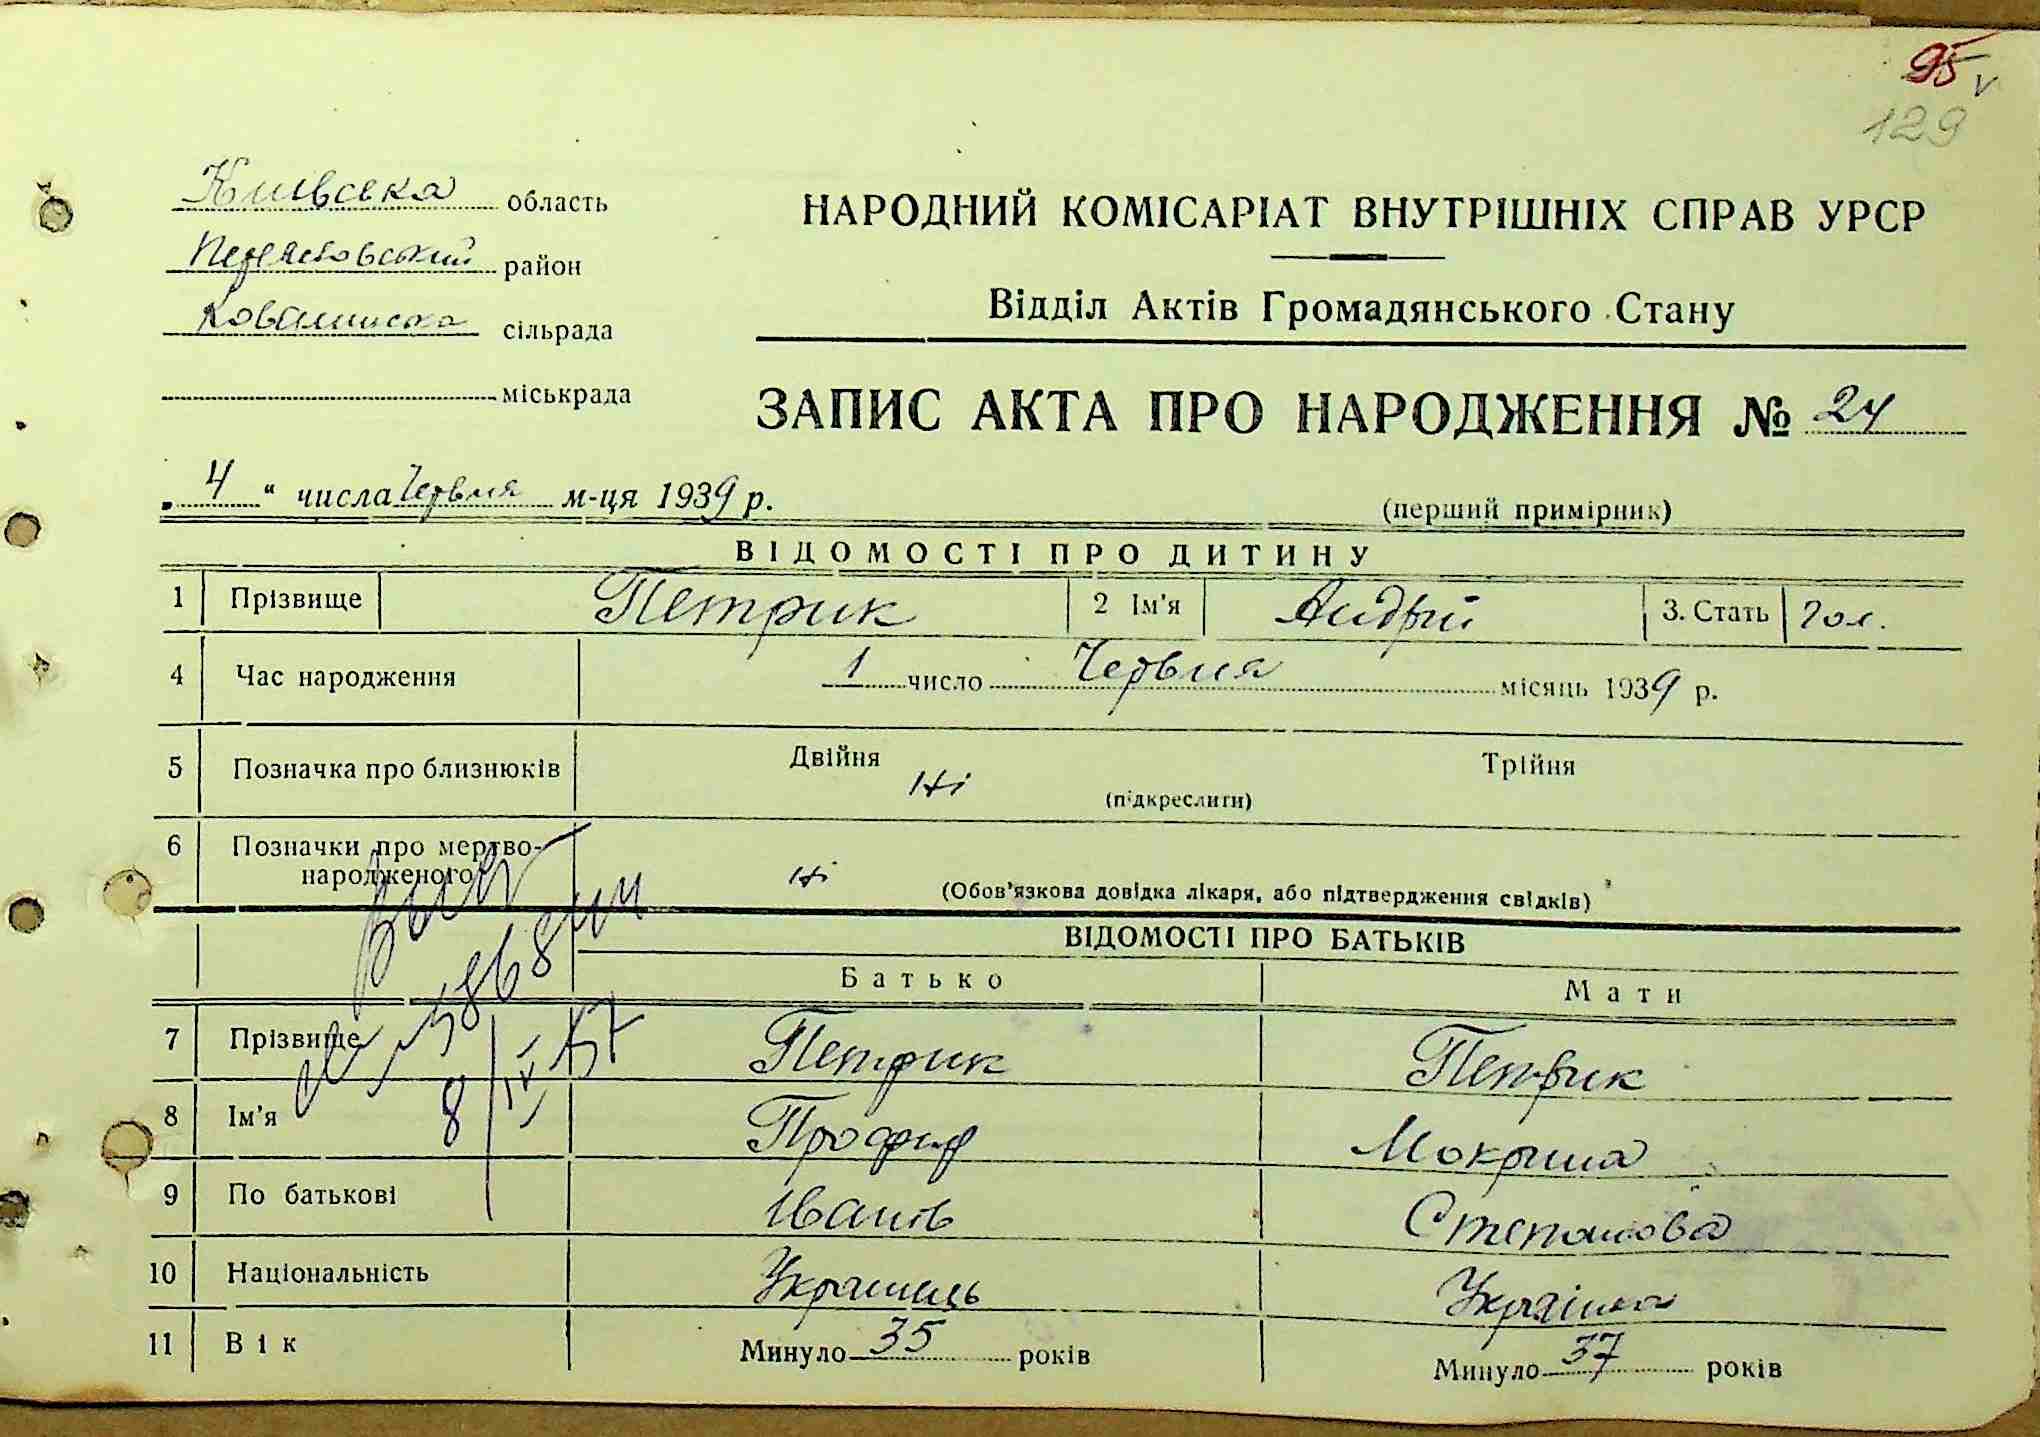 95 v
129
Київська область
Переяславський район
Ковалинська сільрада
міськрада
НАРОДНИЙ КОМІСАРІАТ ВНУТРІШНІХ СПРАВ УРСР
Відділ Актів Громадянського Стану
ЗАПИС АКТА ПРО НАРОДЖЕННЯ № 24
„ 4 “ числа Червня м-ця 1939 р.
(перший примірник)
ВІДОМОСТІ ПРО ДИТИНУ
1 Прізвище Петрик 2 Ім'я Андрій 3. Стать Чол.
4 Час народження 1 число Червня місяць 1939 р.
5 Позначка про близнюків Двійня Ні (підкреслити) Трійня
6 Позначки про мертвонародженого Ні (Обов'язкова довідка лікаря, або підтвердження свідків)
ВІДОМОСТІ ПРО БАТЬКІВ
Батько Мати
7 Прізвище Петрик Петрик
8 Ім'я Профир Мокрина
9 По батькові Іванів Степанова
10 Національність Українець Українка
11 Вік Минуло 35 років Минуло 37 років
8/IV 57